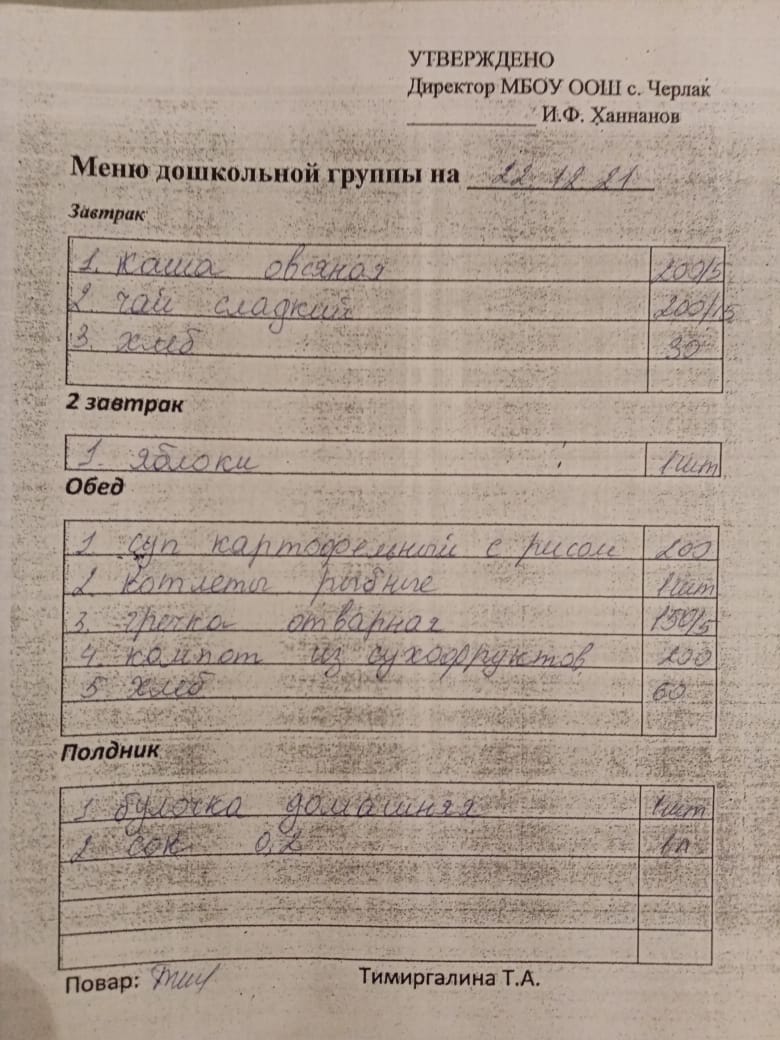 УТВЕРЖДЕНО
Директор МБОУ ООШ с. Черлак
____________ И.Ф. Ханнанов
Меню дошкольной группы на 22.12.21
Завтрак
1. каша овсяная 200/5
2. чай сладкий 200/15
3. хлеб 30
2 завтрак
1. яблоки 1 шт
Обед
1 суп картофельный с рисом 200
2 котлеты рыбные 1 шт
3. гречка отварная 150/5
4. компот из сухофруктов 200
5 хлеб 60
Полдник
1 булочка домашняя 1 шт
2 сок 0,2 1 п
Повар: Тимиргалина Т.А.